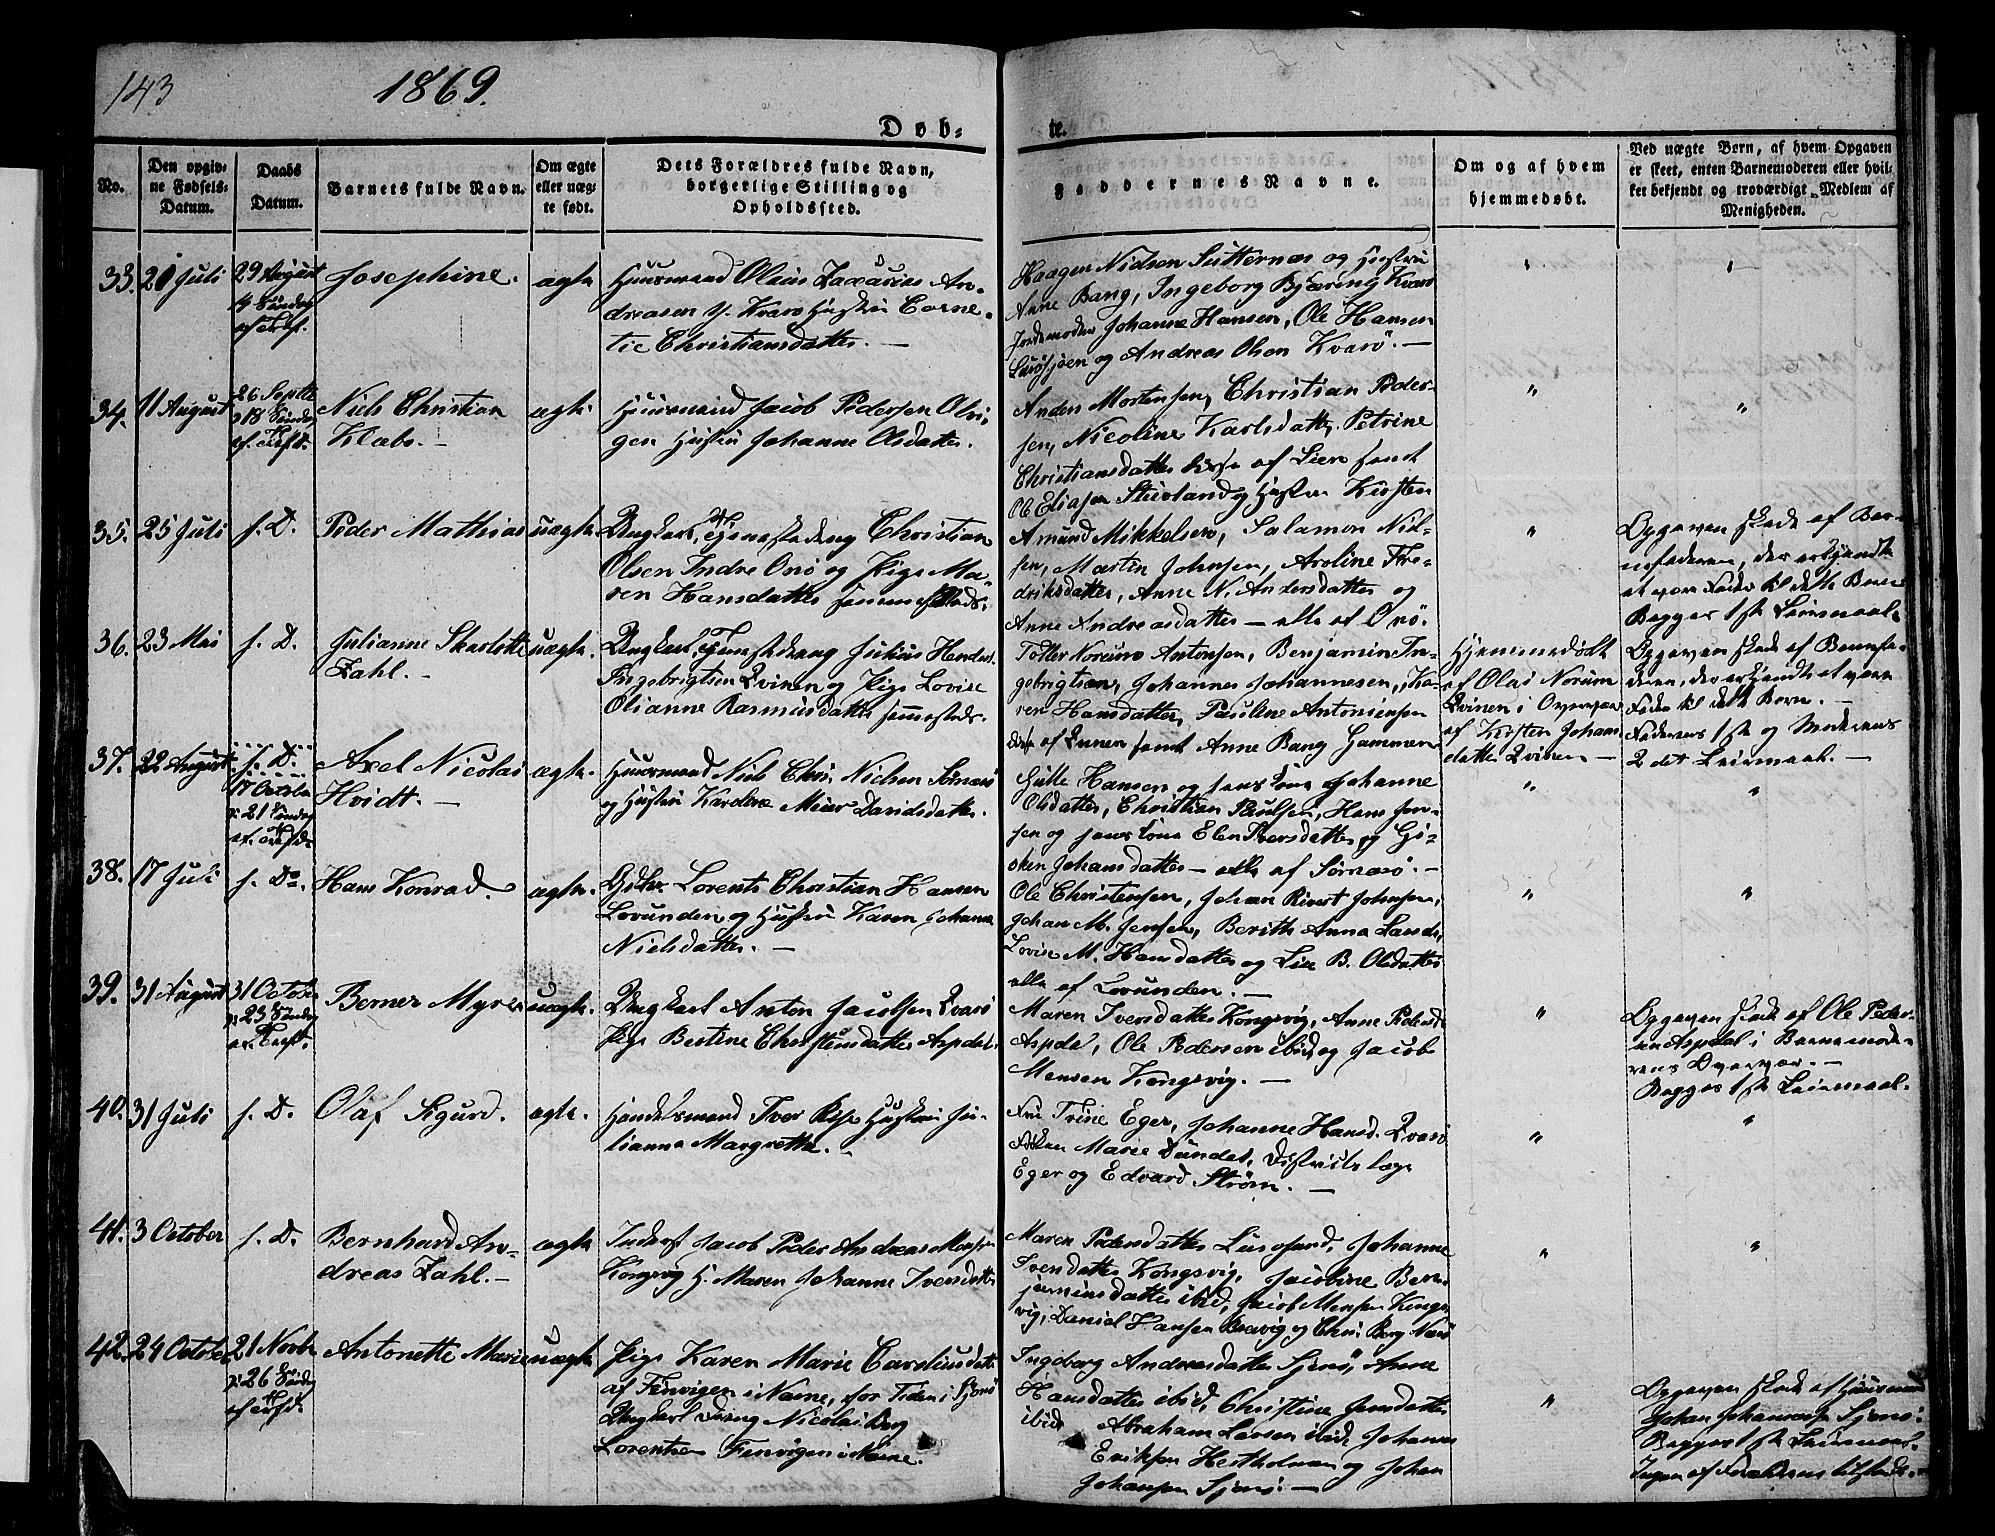 143
1869.
Døb-
te.
No.
Den opgiv-
ne Fødsels-
Datum.
Daabs
Datum.
Barnets fulde Navn.
Om ægte
eller uæg-
te født.
Dets Forældres fulde Navn,
borgerlige Stilling og
Opholdssted.
Faddernes Navne.
Om og af hvem
hjemmedøbt.
Ved uægte Børn, af hvem Opgaven
er skeet, enten Barnemoderen eller hvil-
ket bekjendt og troværdigt Medlem af
Menigheden.
33.
Juli
29 August
4 Søndag
Josephine.
ægte
Huusmand Olaus Zacarias An-
dreasen Kvarø Hustru Corne-
lie Christiansdatter. —
Haagen Nielsen Sutternæs og Hustru
Anne Bang, Ingeborg Bjæring Kvarø
Jordemoder Johanne Hansen, Ole Hansen
og Andreas Olsen Kvarø. —
34.
11 August
26 Septbr
18 Søndag
Niels Christian
Klæbo. —
ægte
Huusmand Jacob Pedersen Olvi-
gen Hustru Johanne Olsdatter.
Anders Mortensen, Christian Peder-
sen, Nicoline Karlsdatter, Petrine
Christiansdatter af samt
Ole Eliasen og Hustru Kirsten
35.
25 Juli
s. D.
Peder Mathias
uægte
Ungkarl, Tjenestedreng Christian
Olsen Indre Onø og Pige Ma-
ren Hansdatter sammesteds.
Amund Mikkelsen, Salamon Niel-
sen, Martin Johnsen, Aroline Fre-
driksdatter, Anne N. Andersdatter og
Anne Andreasdatter — alle af Onø.
Opgaven skede af Bar-
nefaderen, der erkjendte
at være Fader til dette Barn
Begges 1ste Leiermaal.
36.
23 Mai
s. D.
Julianne Skarlotte
Zahl. —
uægte.
Ungkarl, Tjenestedreng Julius
Ingebrigtsen Qvinen og Pige Lovise
Olianne Rasmusdatter sammesteds.
Norum Antonsen, Benjamin In-
gebrigtsen, Johannes Johannesen, Ka-
ren Hansdatter, Pauline Antonsen
af Qvinen samt Anne Bang Hammen
Hjemmedøbt
af Olai Norum
Qvinen i Overvær
af Kirsten Johans
datter Qvinen —
Opgaven skede af Barnefa-
deren, der erkjendte at være
Fader til dette Barn. —
Faderens 1ste og Moderens
2det Leiermaal. —
37.
22 August
s. D.
17 October
21 Søndag
Axel Nicolai
Hvidt. —
ægte.
Huusmand Niels Chri. Nielsen Sørnæsø
og Hustru Davidsdatter.
Hansen og hans Kone Johanne
Olsdatter, Christian Paulsen, Hans Jen-
sen og hans Kone Elen Iversdatter og Gi-
sken Johansdatter — alle af Sørnæsø. —
38.
17 Juli
s. D.
Hans Konrad.
ægte.
Lorents Christian Hansen
Lovunden og Hustru Karen Johanna
Nielsdatter. —
Ole Christensen, Johan Rivert Johnsen,
Johan M. Jensen, Berith Anna Larsd.,
Lovise M. Hansdatter og B. Olsdatter
alle af Lovunden. —
39.
31 August
31 October
23 Søndag
Berner Myre
uægte.
Ungkarl Anton Jacobsen Qvarø
Pige Bestine Christensdatter Aspdal.
Maren Iversdatter Kongsvig, Anne Pedersd
Aspdal, Ole Pedersen ibid, og Jacob
Monsen Kongsvig. —
Opgaven skede af Ole Peder-
sen Aspdal i Barnemode-
rens Overvær. —
Begges 1ste Leiermaal.
40.
31 Juli
s. D.
Olaf Sigurd.
ægte.
Handelsmand Iver Hustru Ju-
lianna Margrethe. —
Fru Trine Eger, Johanne Hansd. Qvarø
Marie Dundas, Districtslæge
Eger og Edvard Strøm. —
41.
3 October
s. D.
Bernhard An-
dreas Zahl. —
ægte
Inderst Jacob Peder Andreas Monsen
Kongsvig H. Maren Johanne Iversdatter
Maren Pedersdatter Johanne
Iversdatter Kongsvig, Jacobine Ben-
jaminsdatter ibid, Jacob Monsen Kongs-
vig, Daniel Hansen Bravig og Chri. Berg
42.
24 October
21 Novbr
26 Søndag
Antonette Marie
uægte
Pige Karen Marie Caroliusdatter
af Finvigen i Næsne, for Tiden i Sjonø
Ungkarl Dreng Nicolai Berg
Lorentsen Finvigen i Næsne.
Ingeborg Andreasdatter Sjonø, Anne
Hansdatter ibid, Christine Jensdatter
ibid Abraham Larsen ibid, Johannes
Eriksen Hestholmen og Johan
Johansen Sjonø. —
Opgaven skede af Huusmand
Johan Johansen Sjonø.
Begges 1ste Leiermaal.
Ingen af Forældrene tilstede. —